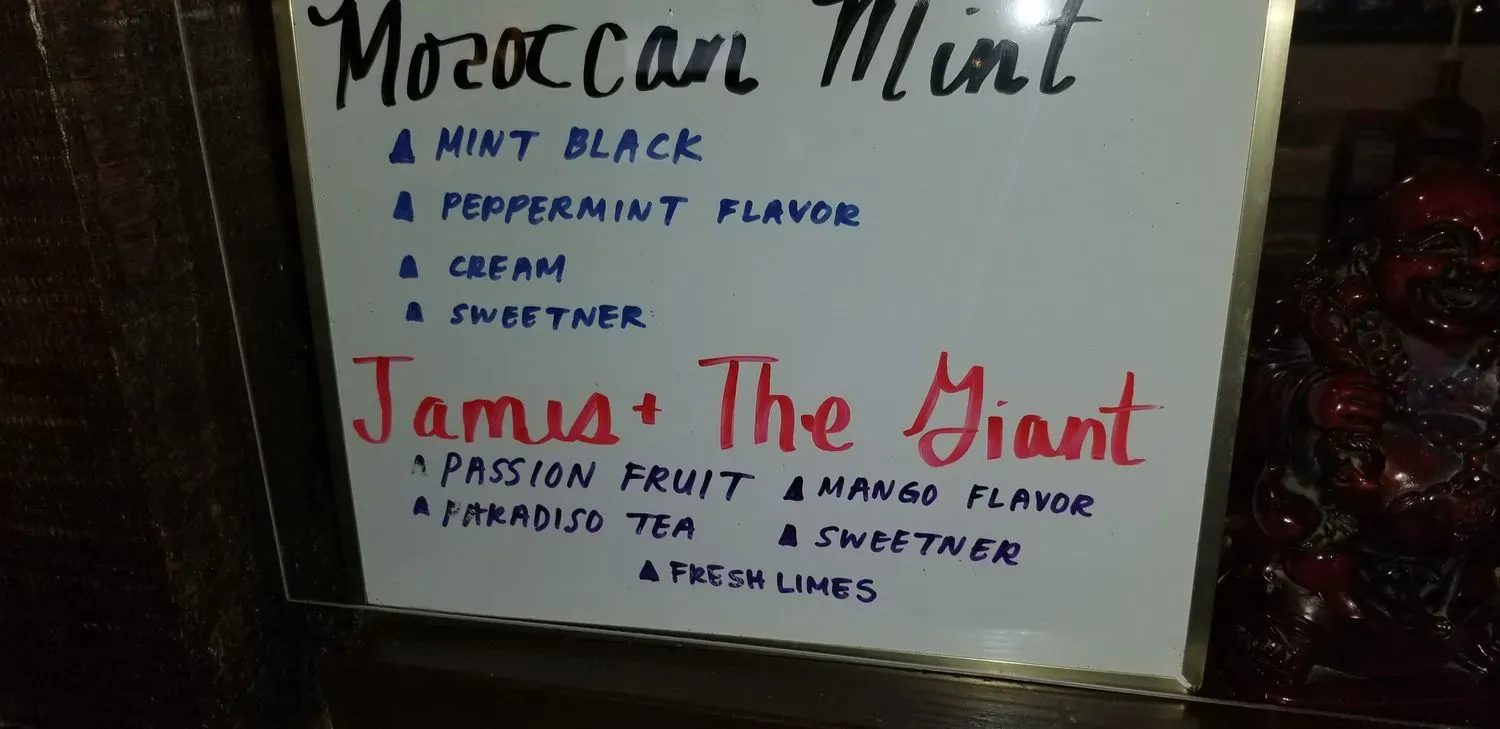 Moroccan Mint
MINT BLACK
PEPPERMINT FLAVOR
CREAM
SWEETNER
James + The Giant
PASSION FRUIT
MANGO FLAVOR
PARADISO TEA
SWEETNER
FRESH LIMES